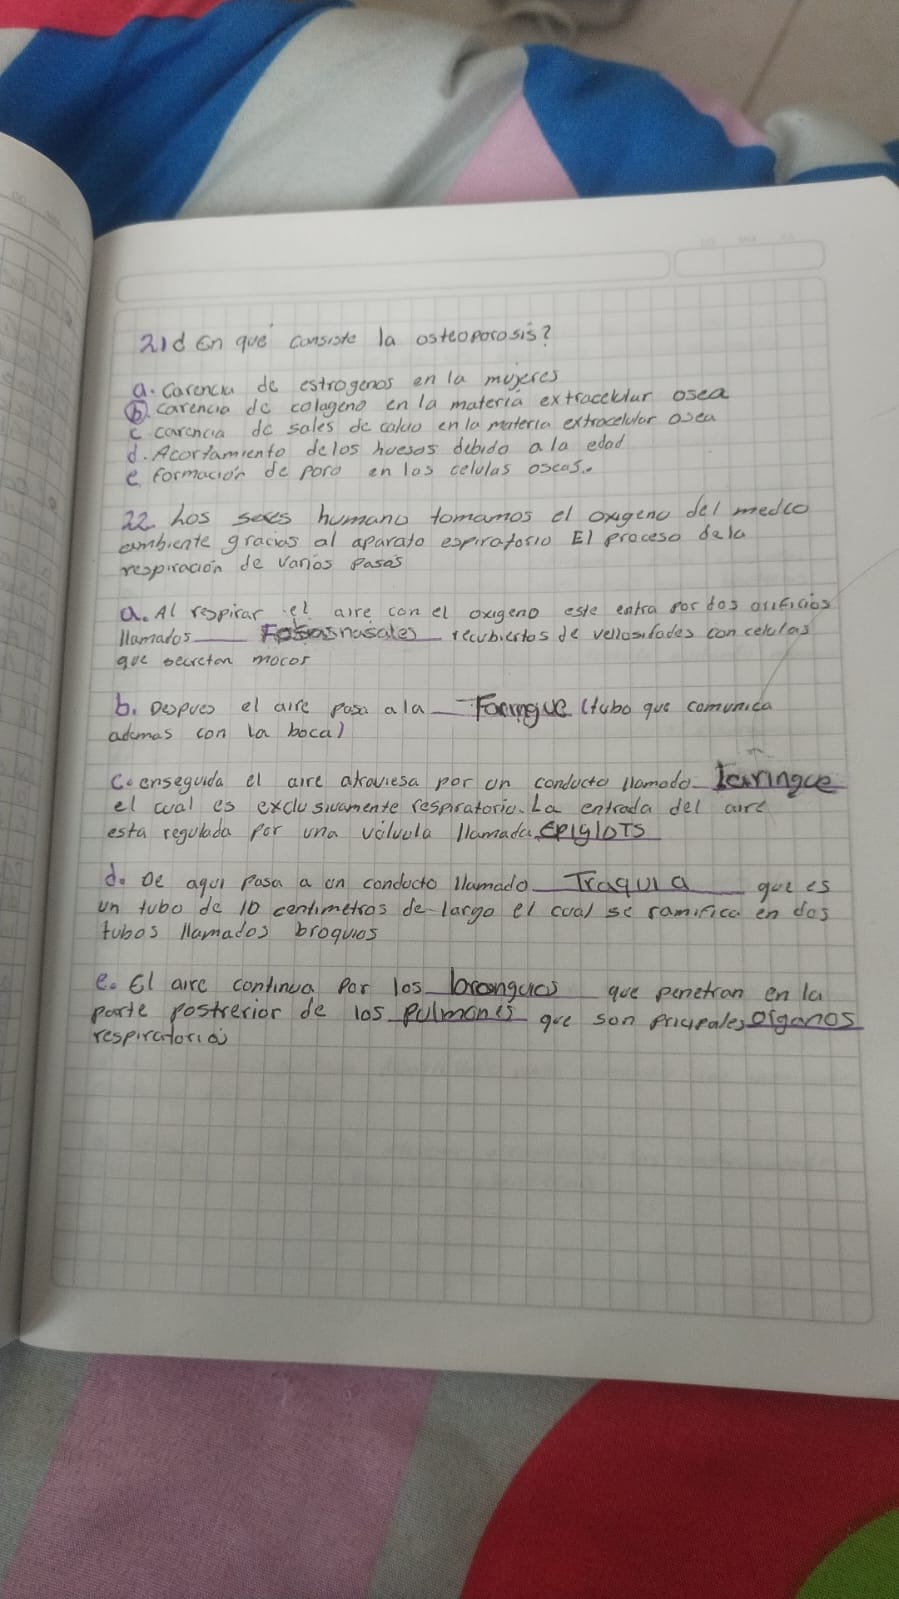 21 ¿ En que consiste la osteoporosis?
a. Carencia de estrogenos en la mujeres
b. carencia de colageno en la materia extracelular osea
c carencia de sales de calcio en la materia extracelular osea
d. Acortamiento delos huesos debido a la edad
e formación de poro en las celulas oseas.
22. Los seres humano tomamos el oxigeno del medio
ambiente gracias al aparato espiratorio El proceso dela
respiración de varios pasos
a. Al respirar el aire con el oxigeno este entra por dos orificios
llamados Fosas nasales recubiertos de vellosidades con celulas
que secretan mocos
b. Despues el aire pasa a la Faringue (tubo que comunica
ademas con la boca)
c. enseguida el aire atraviesa por un conducto llamado laringue
el cual es exclusivamente respiratorio. La entrada del aire
esta regulada por una válvula llamada EPIGLOTS
d. De aqui pasa a un conducto llamado Traquia que es
un tubo de 10 centimetros de largo el cual se ramifica en dos
tubos llamados broquios
e. El aire continua por los que penetran en la
parte postrerior de los pulmones que son pricipales organos
respiratorios